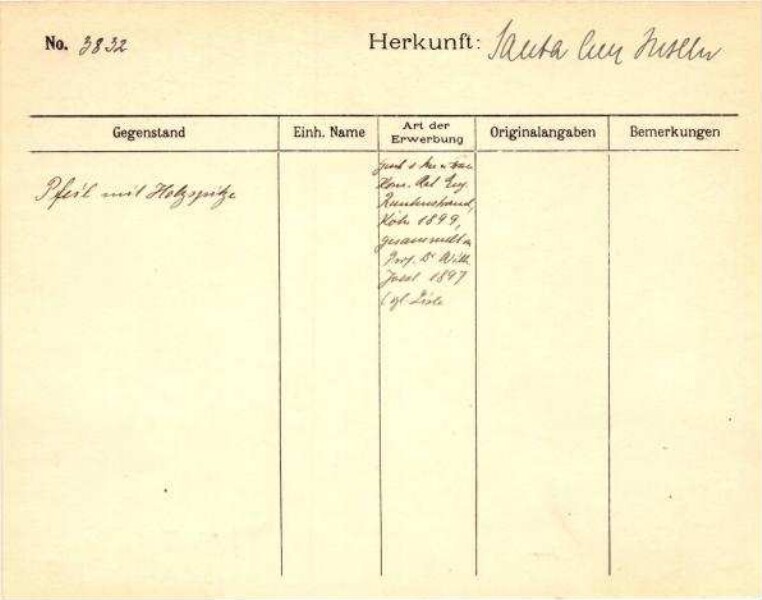 No. 3832 Herkunft: Santa Cruz Inseln
Gegenstand Einh. Name Art der Erwerbung Originalangaben Bemerkungen
Pfeil mit Holzspitze
Rautenstrauch,
Köln 1899,
gesammelt v.
Prof. Dr Wilh.
Joest 1897